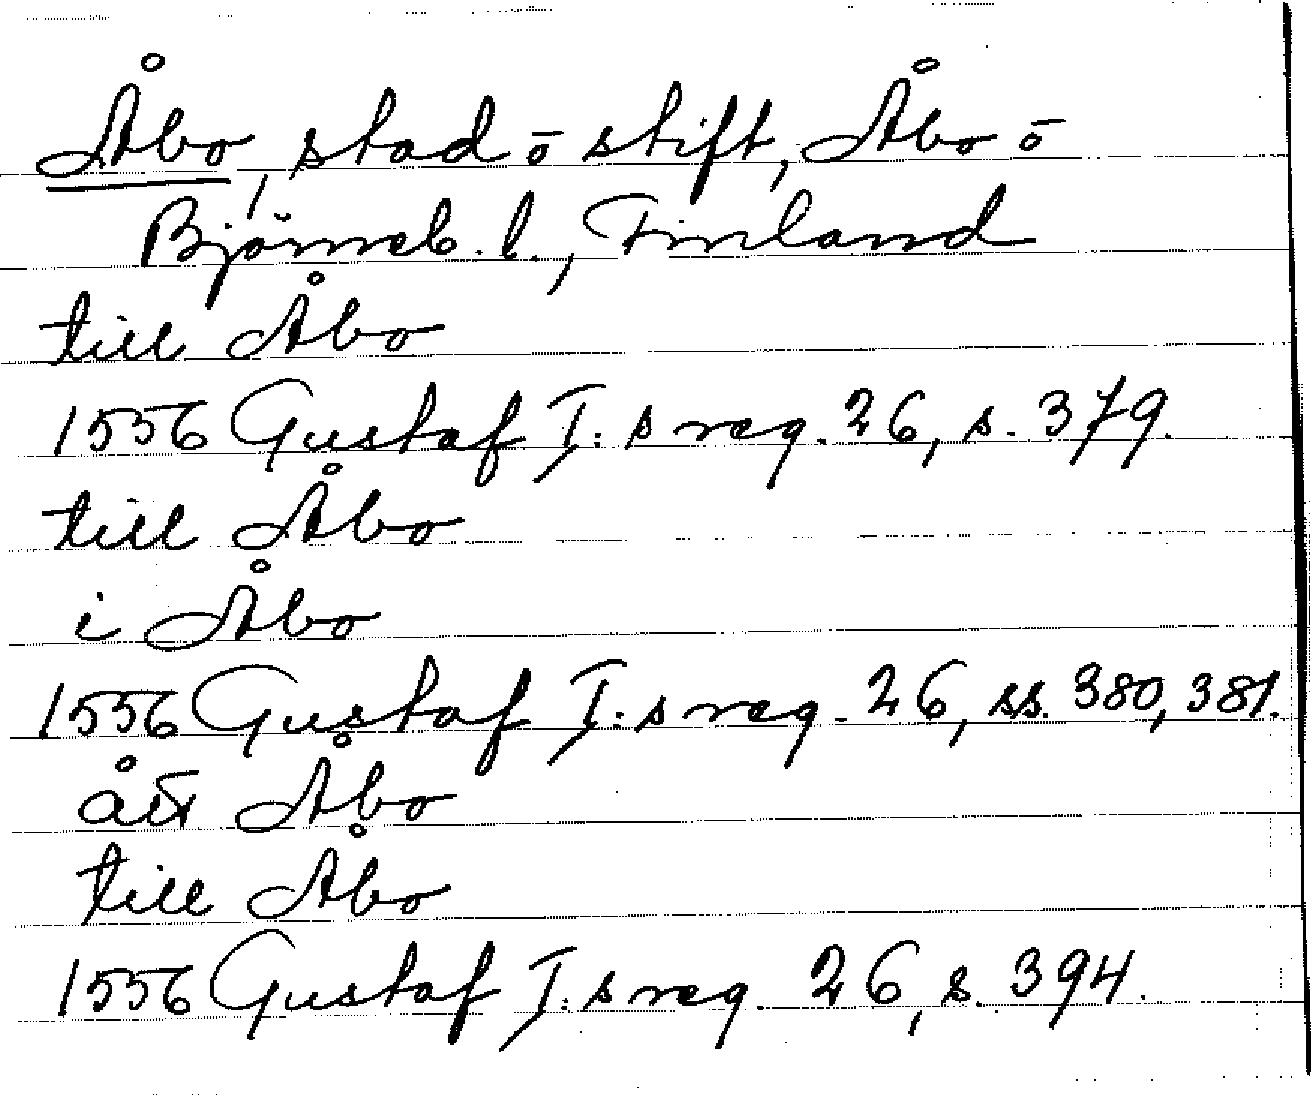 Åbo, stad ō stift, Åbo ō
Björneb. l., Finland
till Åbo
1556 Gustaf I:s reg. 26, s. 379.
till Åbo
i Åbo
1556 Gustaf I:s reg. 26, ss. 380, 381.
ått Åbo
till Åbo
1556 Gustaf I:s reg. 26, s. 394.